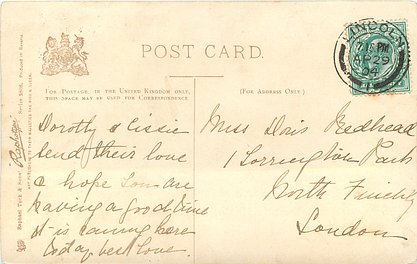 POST CARD.
FOR POSTAGE, IN THE UNITED KINGDOM ONLY,
THIS SPACE MAY BE USED FOR CORRESPONDENCE
(FOR ADDRESS ONLY.)
LINCOLN
7 15 PM
AP 29
04
Dorothy & Cissie
send their love
I hope you are
having a good time
it is raining here
today. best love.
Miss Doris Redhead
1 Torrington Park
North Finchley
London
Raphael Tuck & Sons'
"Rapholette"